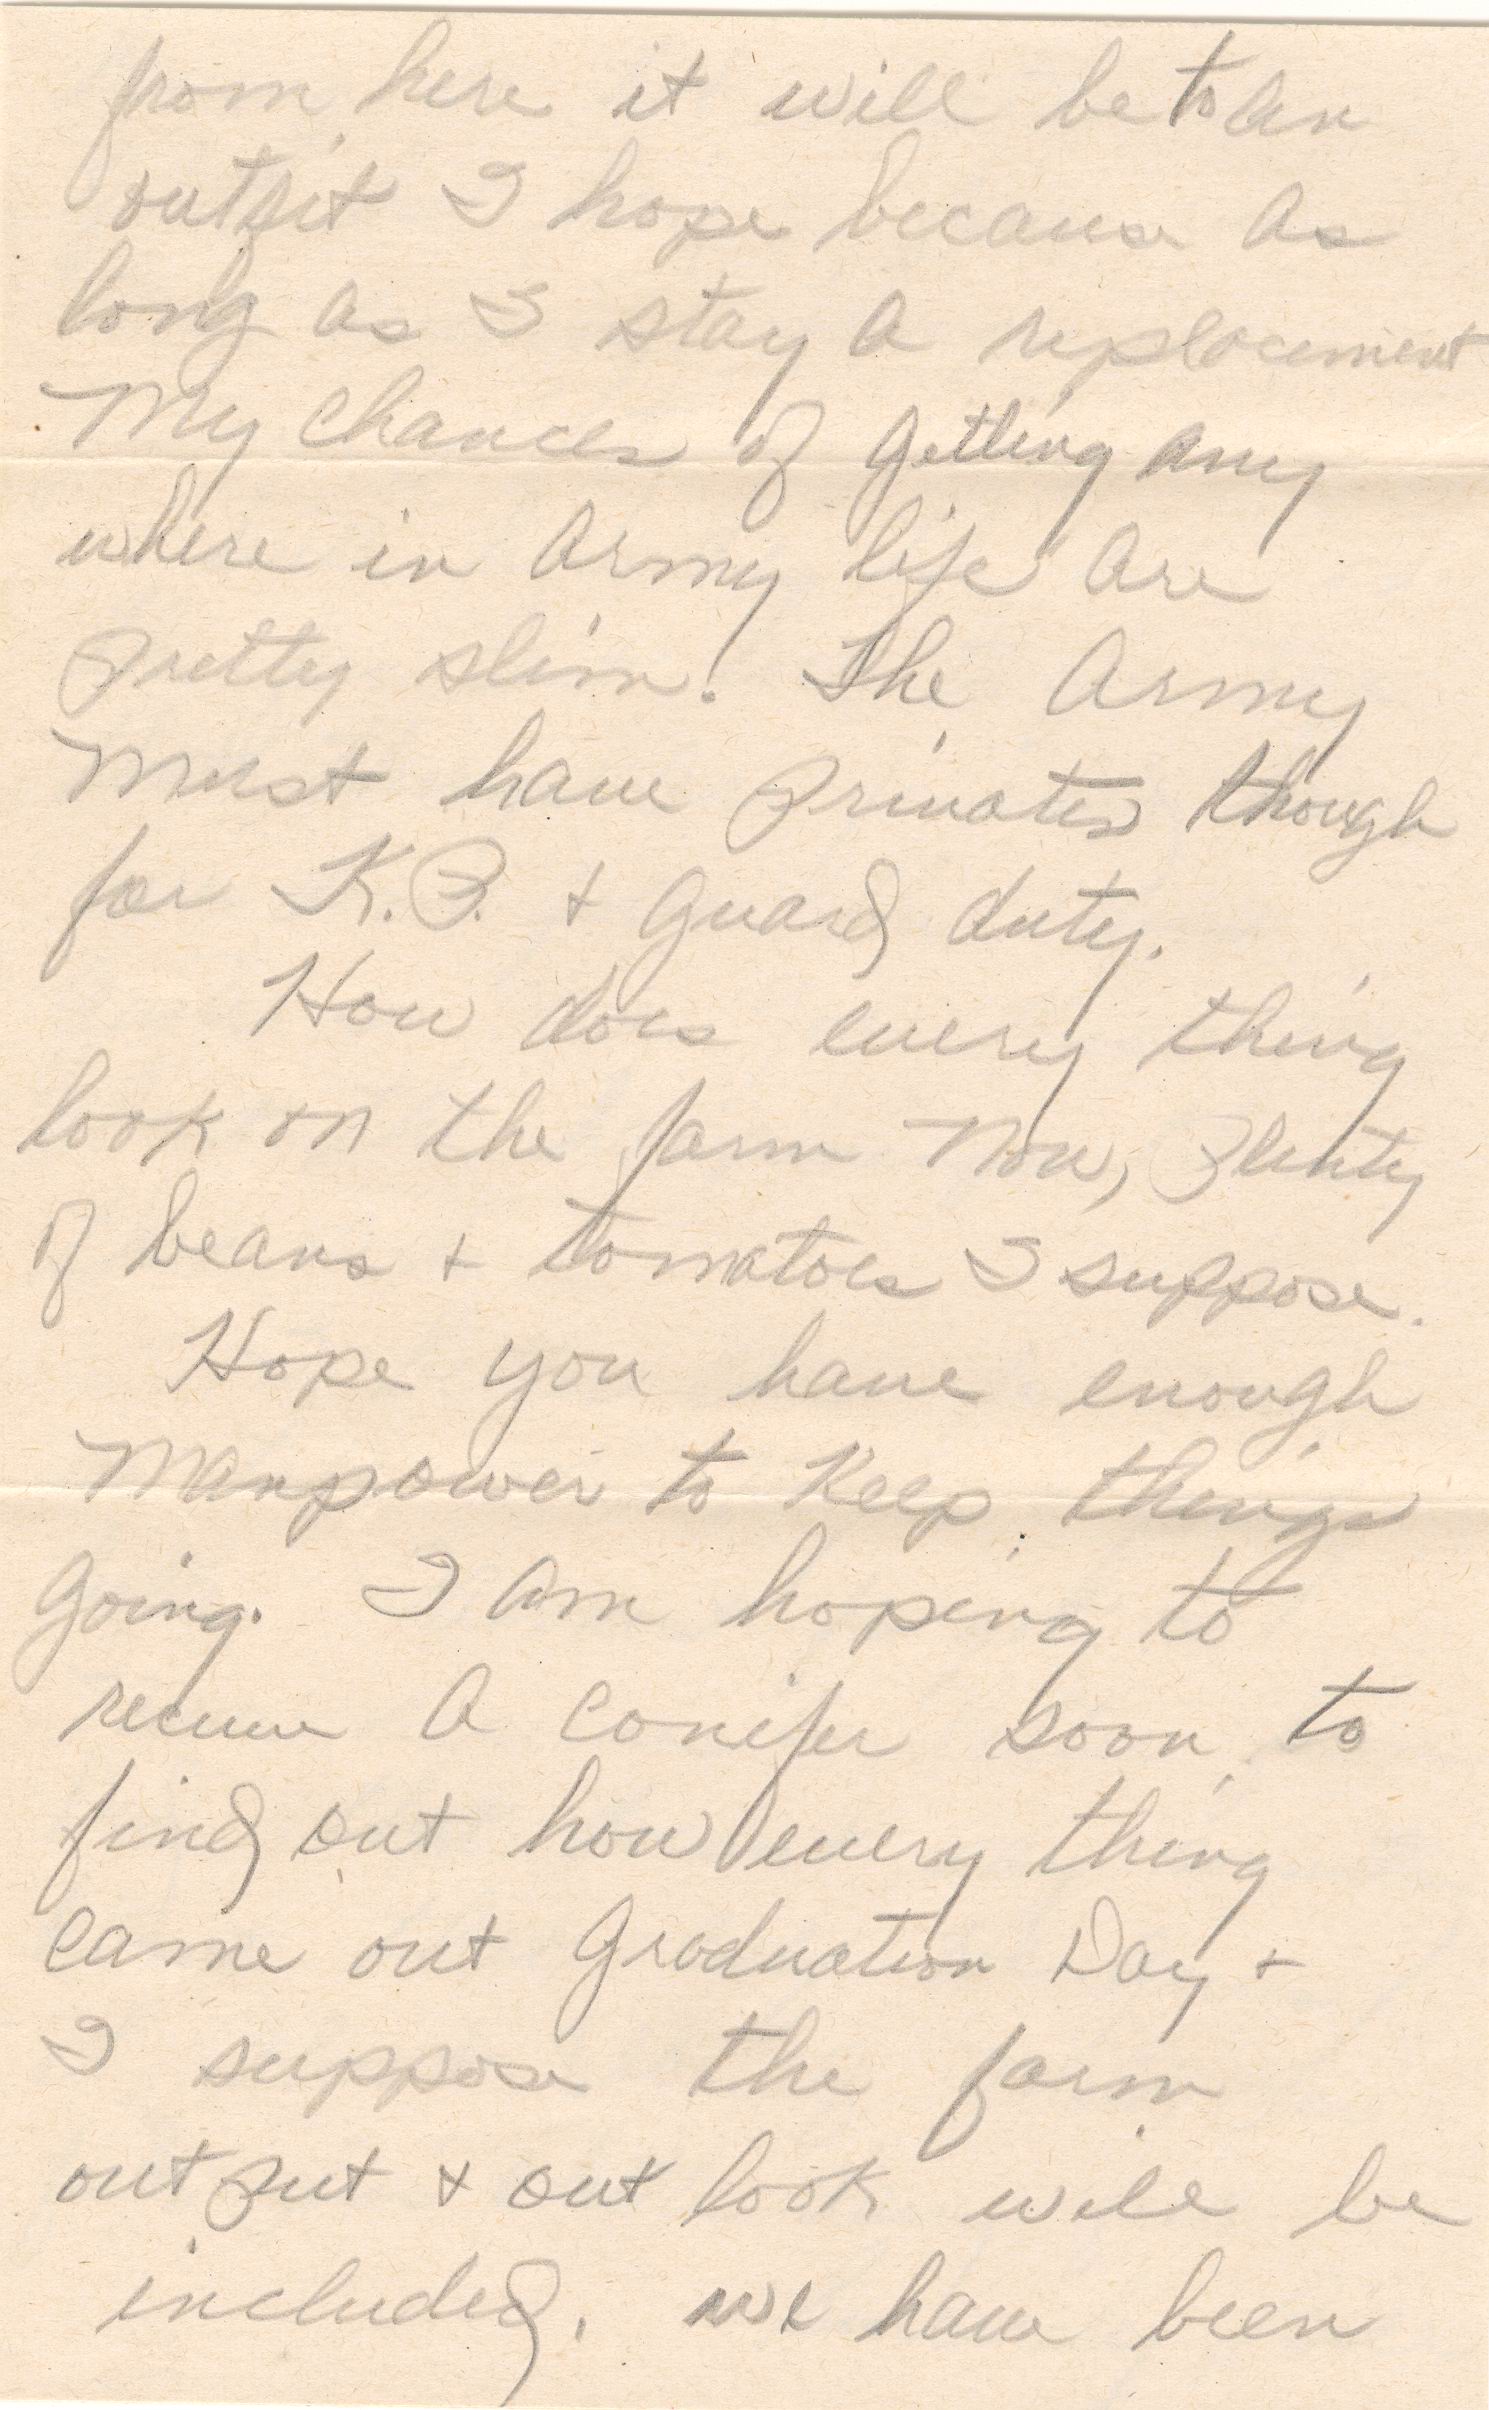 from here it will be to an
outfit I hope because as
long as I stay a replacement
My chances of getting any
where in Army life are
pretty slim. The Army
Must have Privates though
for K.P. + guard duty.
How does every thing
look on the farm now, Plenty
of beans + tomatoes I suppose.
Hope you have enough
Manpower to keep things
going. I am hoping to
receive a conifer soon to
find out how every thing
came out Graduation Day +
I suppose the farm
out put + out look will be
included. we have been